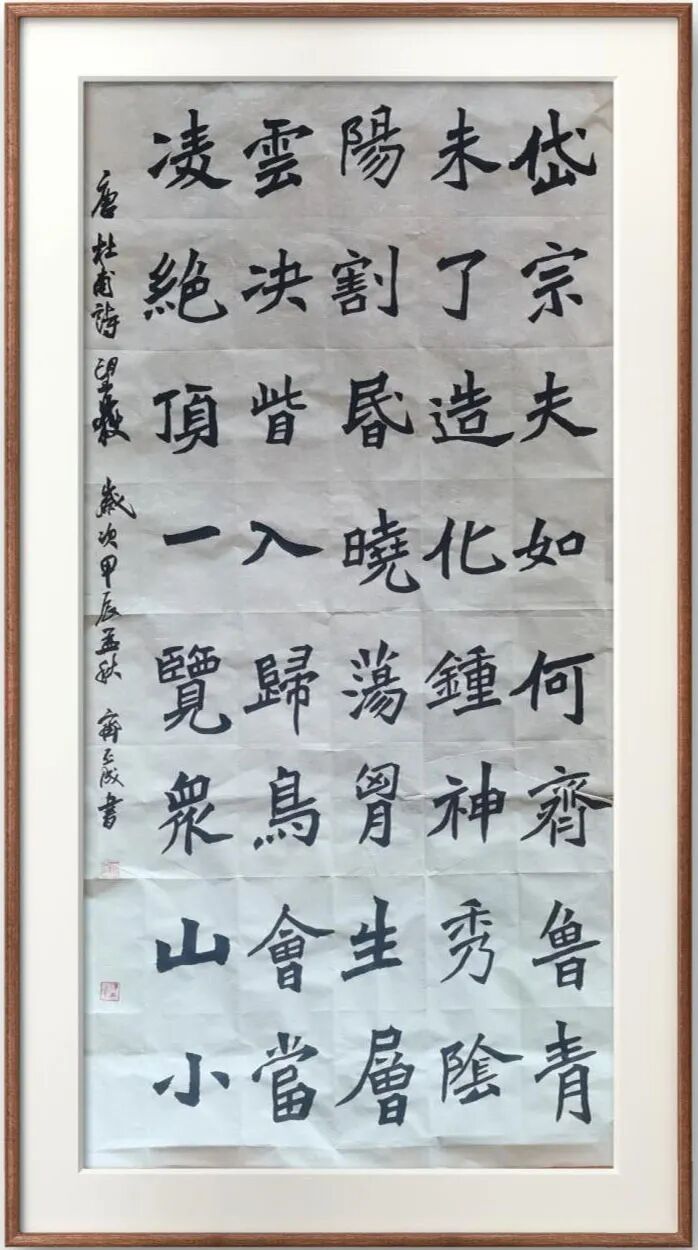 岱宗夫如何齊魯青
未了造化鍾神秀陰
陽割昏曉蕩胷生層
雲決眥入歸鳥會當
凌絕頂一覽衆山小
唐杜甫詩望嶽 歲次甲辰孟秋 齊正成書